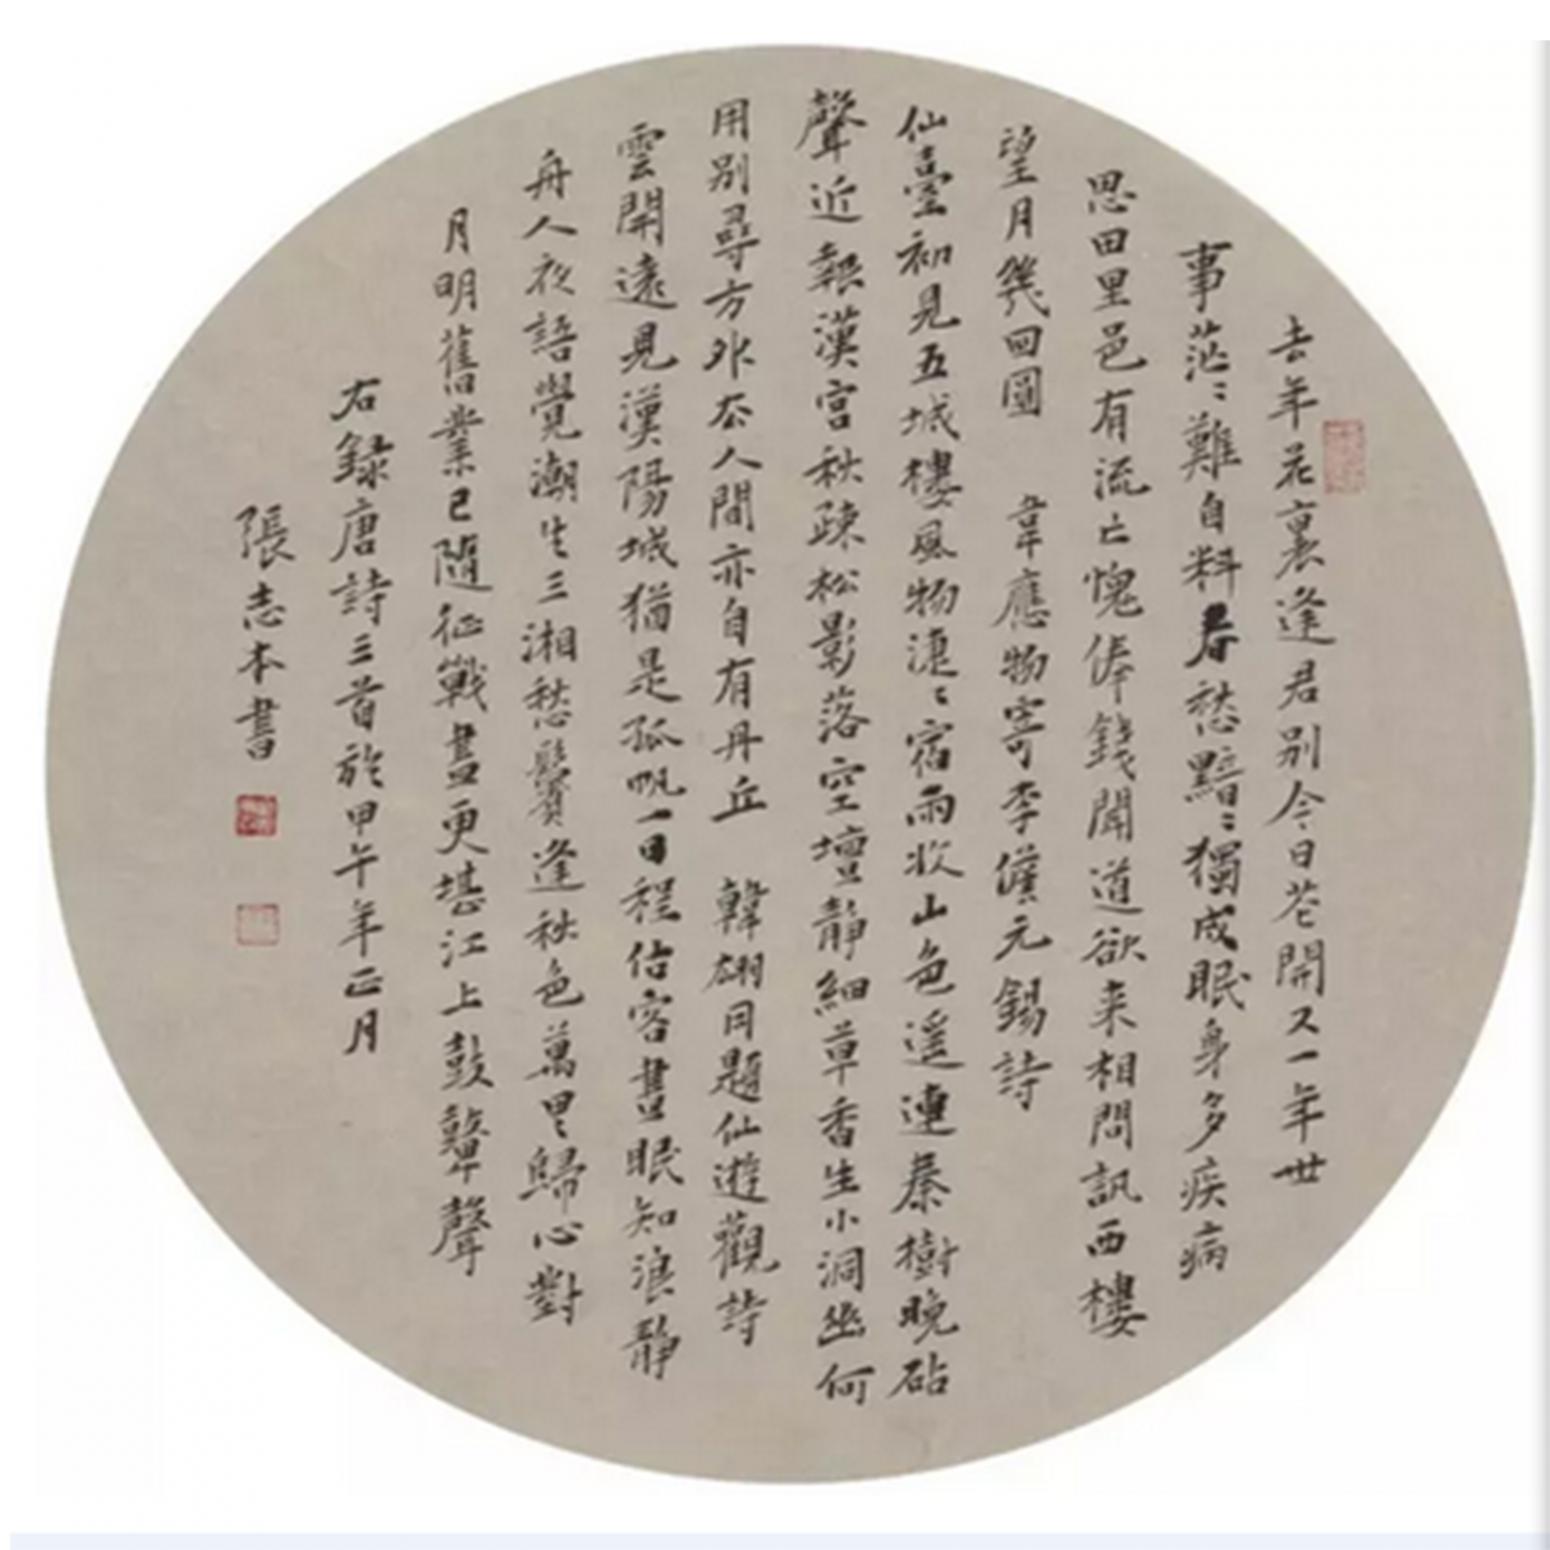 去年花裏逢君別今日花開又一年世
事茫〻難自料春愁黯〻獨成眠身多疾病
思田里邑有流亡愧俸錢聞道欲来相問訊西樓
望月幾回圓 韋應物寄李儋元錫詩
仙臺初見五城樓風物凄〻宿雨收山色遥連秦樹晚砧
聲近報漢宮秋疎松影落空壇静細草香生小洞幽何
用別尋方外去人間亦自有丹丘 韓翃同題仙遊觀詩
雲開遠見漢陽城猶是孤帆一日程估客晝眠知浪静
舟人夜語覺潮生三湘愁鬢逢秋色萬里歸心對
月明舊業已隨征戰盡更堪江上鼓鼙聲
右錄唐詩三首於甲午年正月
張志本書